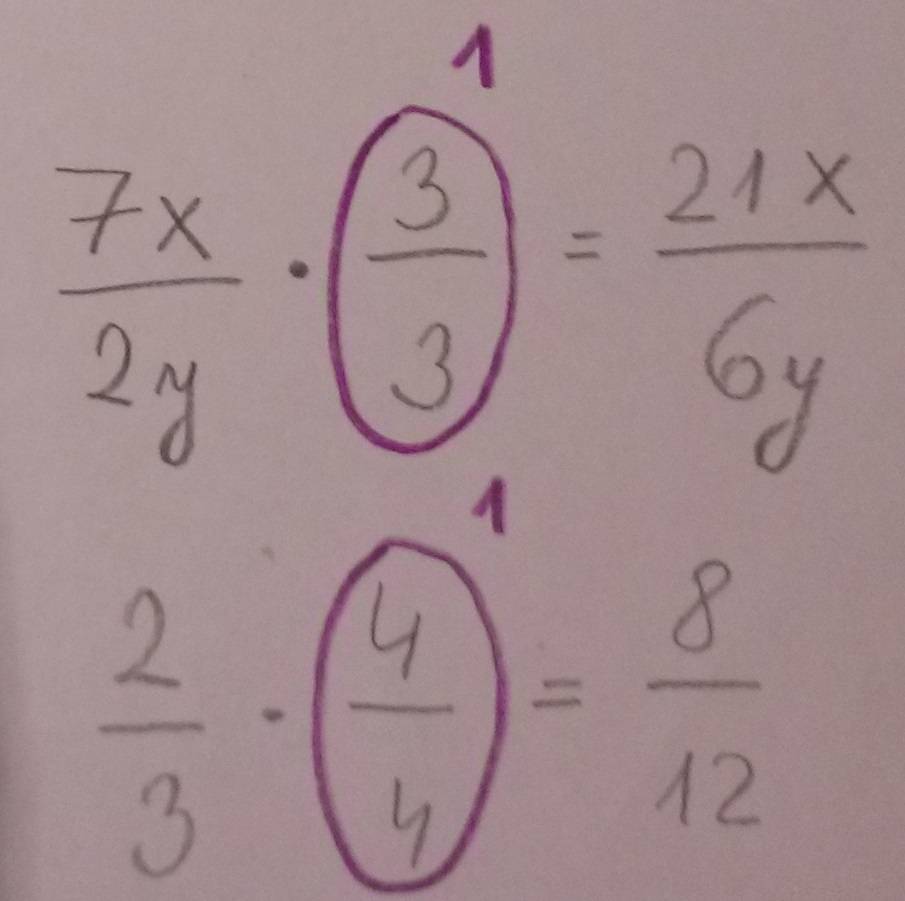 1
7x/2y · 3/3 = 21x/6y
1
2/3 · 4/4 = 8/12